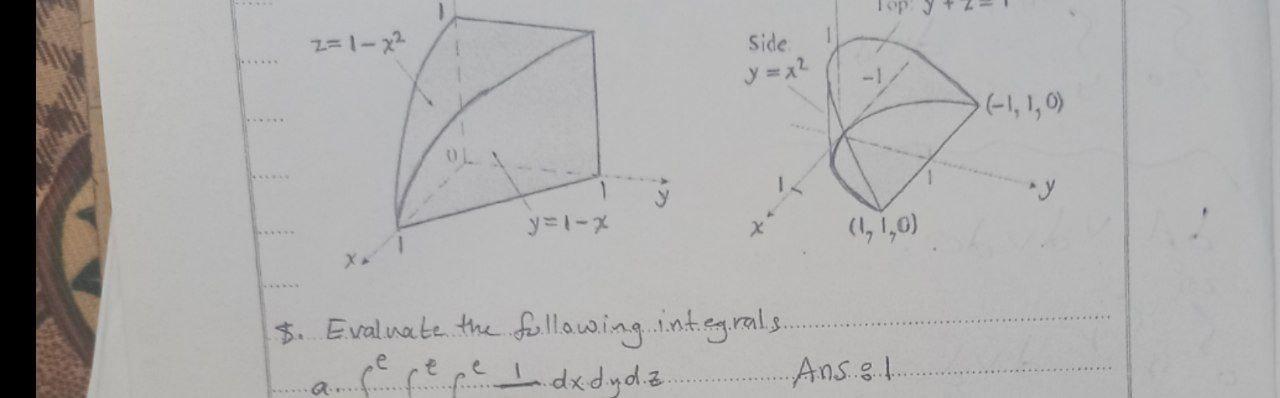 1
z=1-x²
0
y=1-x
1
y
1
x
Top: y+z=1
Side
y=x²
1
-1
(-1, 1, 0)
1
1
y
x
(1, 1, 0)
$. Evaluate the following integrals
a. ∫ᵉ ∫ᵉ ∫ᵉ 1 dxdydz Ans: 1